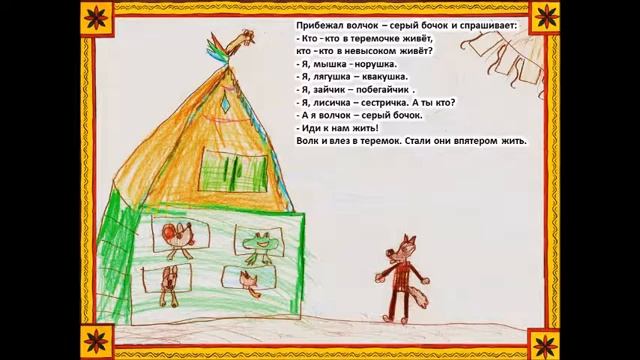 Прибежал волчок – серый бочок и спрашивает:
- Кто -кто в теремочке живёт,
кто –кто в невысоком живёт?
- Я, мышка -норушка.
- Я, лягушка – квакушка.
- Я, зайчик – побегайчик .
- Я, лисичка – сестричка. А ты кто?
- А я волчок – серый бочок.
- Иди к нам жить!
Волк и влез в теремок. Стали они впятером жить.